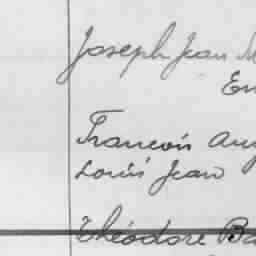 Joseph Jean M
Em
François Aug
Louis Jean
Théodore Ba